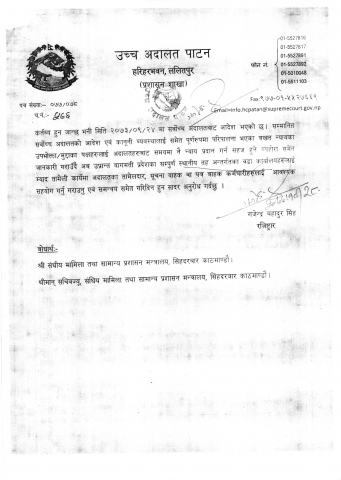 उच्च अदालत पाटन
हरिहरभवन, ललितपुर
(प्रशासन शाखा)
फोन नं.
01-5527816
01-5527817
01-5527891
01-5527892
01-5010048
01-5511103
पत्र संख्याः- ०७७/०७८
च.नं.-
Email=info.hcpatan@supremecourt.gov.np
कर्तव्य हुन जान्छ भनी मिति २०७३/०९/२४ मा सर्वोच्च अदालतबाट आदेश भएको छ। सम्मानित
सर्वोच्च अदालतको आदेश एवं कानूनी व्यवस्थालाई समेत पूर्णरुपमा परिपालना भएका बखत न्यायका
उपभोक्ता/मुद्दाका पक्षहरुलाई अदालतहरुबाट समयमा नै न्याय प्रदान गर्न सहज हुने व्यहोरा समेत
जानकारी गराउँदै अब उप्रान्त वागमती प्रदेशका सम्पूर्ण स्थानीय तह अन्तर्गतका वडा कार्यालयहरुलाई
म्याद तामेली कार्यमा अदालतका तामेलदार, सूचना वाहक वा पत्र वाहक कर्मचारीहरुलाई आवश्यक
सहयोग गर्नु गराउनु एवं समन्वय समेत गरिदिन हुन सादर अनुरोध गर्दछु ।
गजेन्द्र बहादुर सिंह
रजिष्ट्रार
बोधार्थः-
श्री संघीय मामिला तथा सामान्य प्रशासन मन्त्रालय, सिंहदरबार काठमाण्डौ।
श्रीमान् सचिवज्यू, संघिय मामिला तथा सामान्य प्रशासन मन्त्रालय, सिंहदरवार काठमाण्डौ।